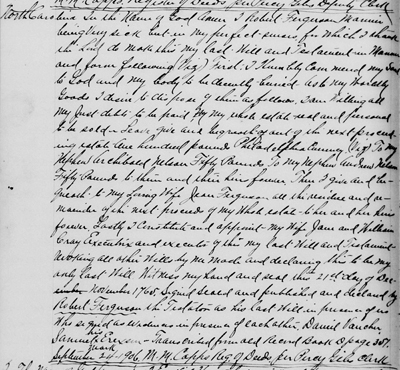 M. M. Capps, Register of Deeds, per Percy Gibs Deputy Clerk
North Carolina In the Name of God Amen I Robert Ferguson Mariner
being very sick but in my perfect senses for which I thank
the Lord do make this my last Will and Testament in Manner
and form following (viz) First. I Humbly Commend my Soul
to God and my body to be decently buried as to my Worldly
Goods I desire to dispose of them as follows, I am Willing all
my Just debts to be paid My whole estate real and personal
to be sold. I give and bequeath out of the next proceed-
ing estate One hundred Pounds Philadelphia Currency (viz) To my
Nephew Archibald Nelson Fifty Pounds To my Nephew Andrew Nelson
Fifty Pounds to them and their heirs forever. Then I give and be-
queath to My Loving Wife Jean Ferguson all the residue and re-
mainder of the next proceeds of my Whole estate to her and her heirs
forever Lastly I Constitute and appoint my Wife Jean and William
Gray Executrix and executor of this my Last Will and Testament
revoking all other Wills by me made and declaring this to be my
only Last Will. Witness my hand and seal this 21st day of
November 1765. Signed sealed and published and declared by
Robert Ferguson the Testator as his Last Will in presence of us
Who signed as Witnesses in presence of each other, Daniel
Samuel his mark Transcribed from old Record Book D page 357.
September 24-1906, M. M. Capps Reg of Deeds per Percy Gibs Clerk